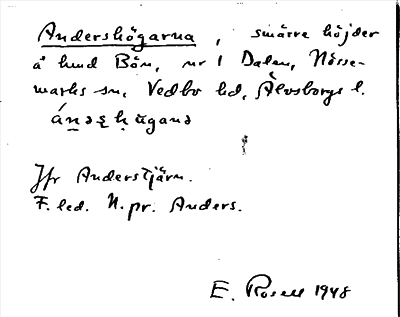 Andershögarna, smärre höjder
å hmd Bön, nr 1 Dalen, Nösse-
marks sn, Vedbo hd, Älvsborgs l.
Jfr Anderstjärn.
F. led. N. pr. Anders.
E. Rosell 1948